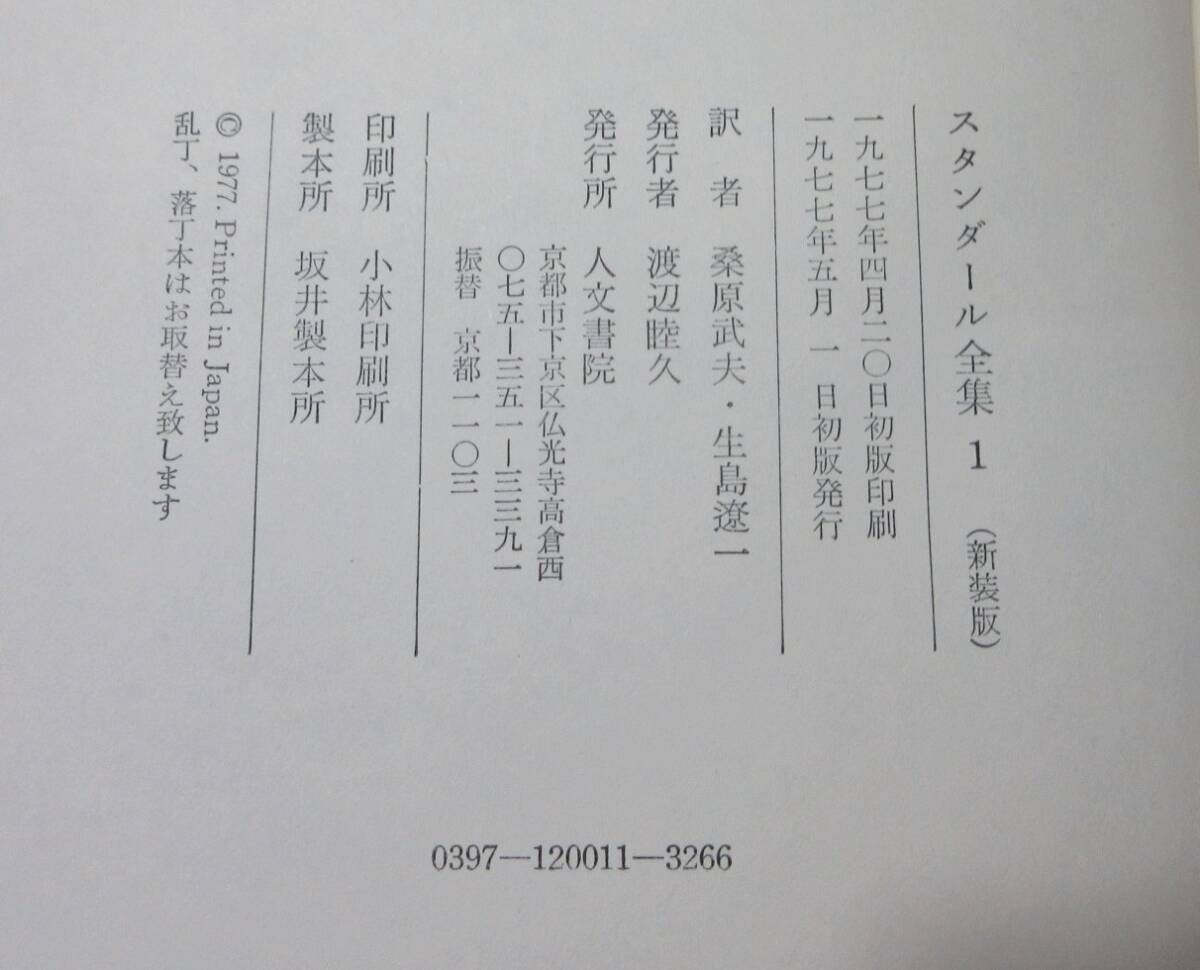 スタンダール全集 1 (新装版)
一九七七年四月二〇日初版印刷
一九七七年五月 一 日初版発行
訳 者 桑原武夫・生島遼一
発行者 渡辺睦久
発行所 人文書院
京都市下京区仏光寺高倉西
〇七五―三五一―三三九一
振替 京都一一〇三
印刷所 小林印刷所
製本所 坂井製本所
© 1977. Printed in Japan.
乱丁、落丁本はお取替え致します
0397―120011―3266